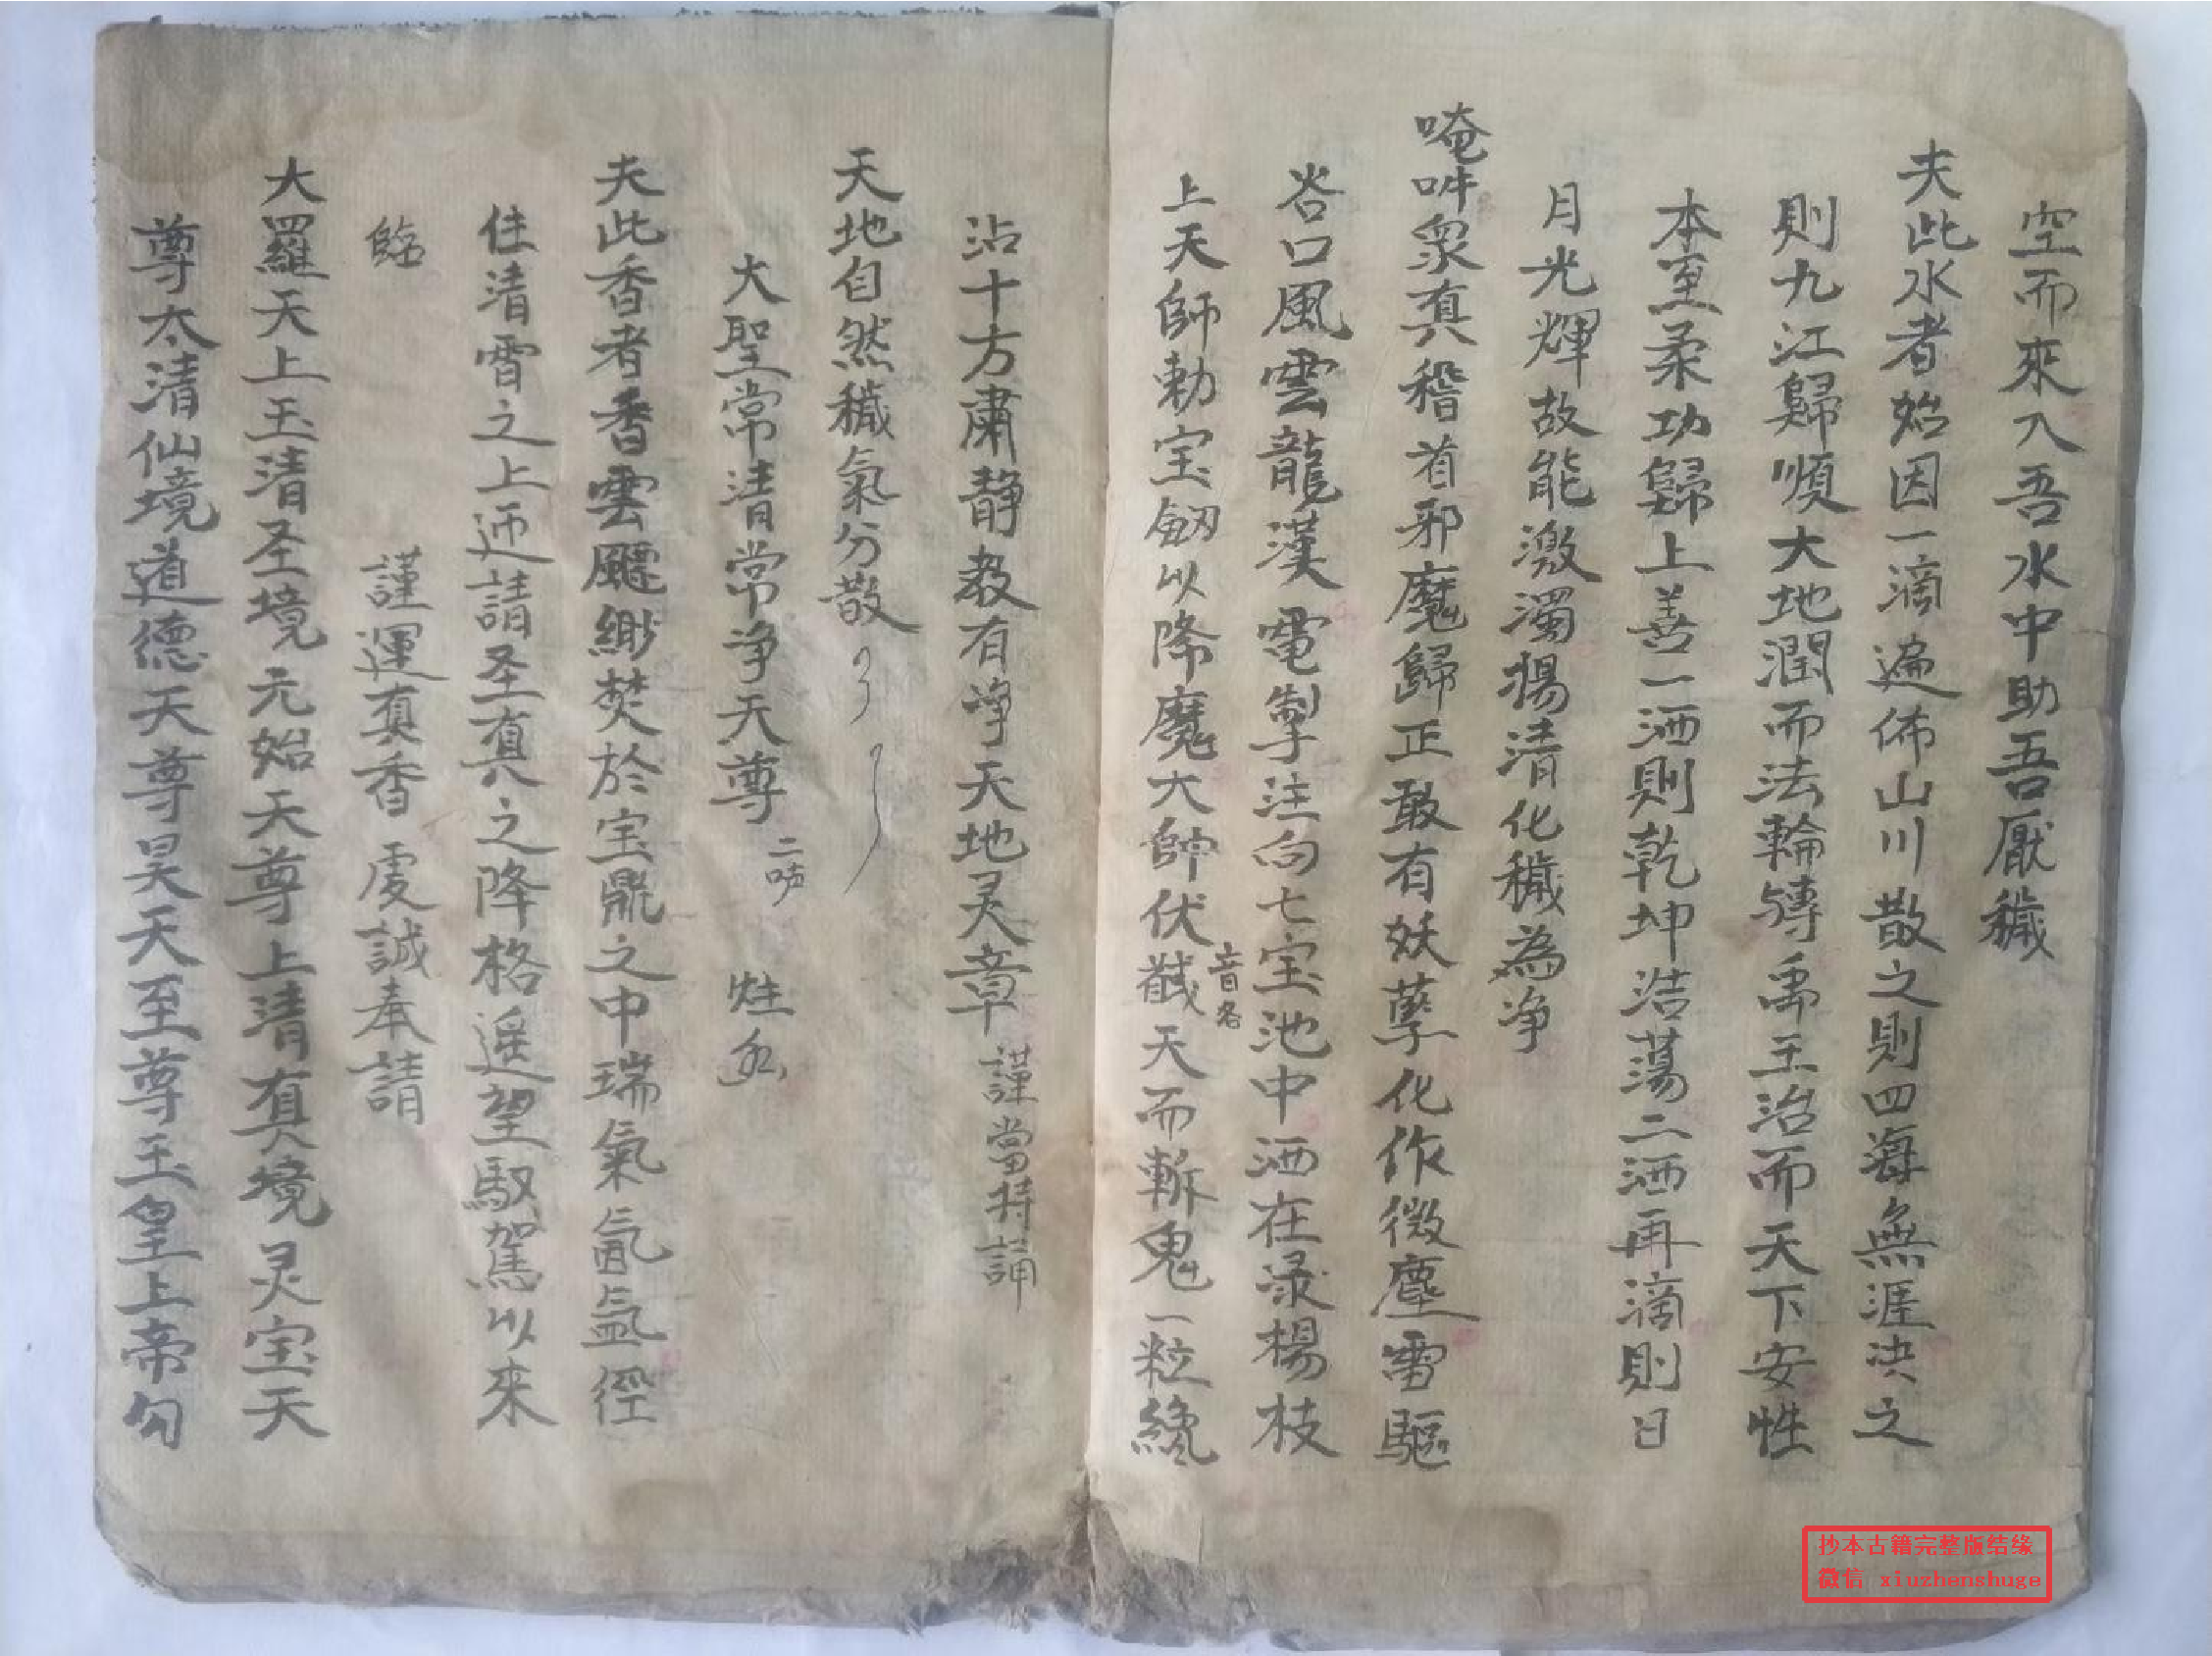 空而來入吾水中助吾厭穢
夫此水者始因一滴遍佈山川散之則四海無涯决之
則九江歸順大地潤而法輪轉禹王治而天下安性
本至柔功歸上善一洒則乾坤浩蕩二洒再滴則日
月光輝故能激濁揚清化穢為净
唵吽衆真稽首邪魔歸正敢有妖孽化作微塵雷驅
谷口風雲龍漢電掣注向七宝池中洒在渌楊枝
上天師勅宝劔以降魔大帥伏天而斬鬼一粒纔
音名
沾十方肅静教有净天地灵章謹當持誦
天地自然穢氣分散
大聖常清常净天尊 二
夫此香者香雲飃緲焚於宝鼎之中瑞氣氤氳徑
住清霄之上迊請圣真之降格遥望馭駕以來
臨 謹運真香虔誠奉請
大羅天上玉清圣境元始天尊上清真境灵宝天
尊太清仙境道德天尊昊天至尊玉皇上帝勾
抄本古籍完整版结缘
微信 xiuzhenshuge